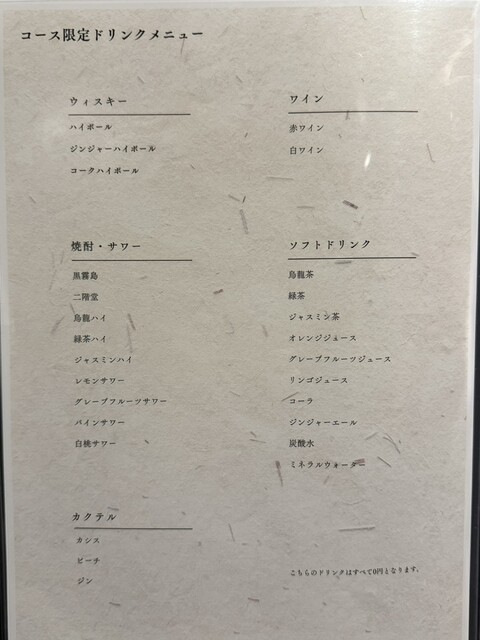 コース限定ドリンクメニュー
ウィスキー
ハイボール
ジンジャーハイボール
コークハイボール
ワイン
赤ワイン
白ワイン
焼酎・サワー
黒霧島
二階堂
烏龍ハイ
緑茶ハイ
ジャスミンハイ
レモンサワー
グレープフルーツサワー
パインサワー
白桃サワー
ソフトドリンク
烏龍茶
緑茶
ジャスミン茶
オレンジジュース
グレープフルーツジュース
リンゴジュース
コーラ
ジンジャーエール
炭酸水
ミネラルウォーター
カクテル
カシス
ピーチ
ジン
こちらのドリンクはすべて0円となります。